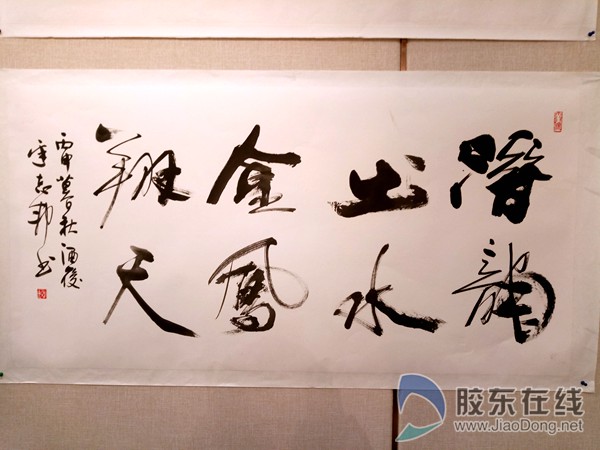 潛龍
出水
金鳳
翔天
丙申暮秋酒後
志邦书
胶东在线
www.JiaoDong.net